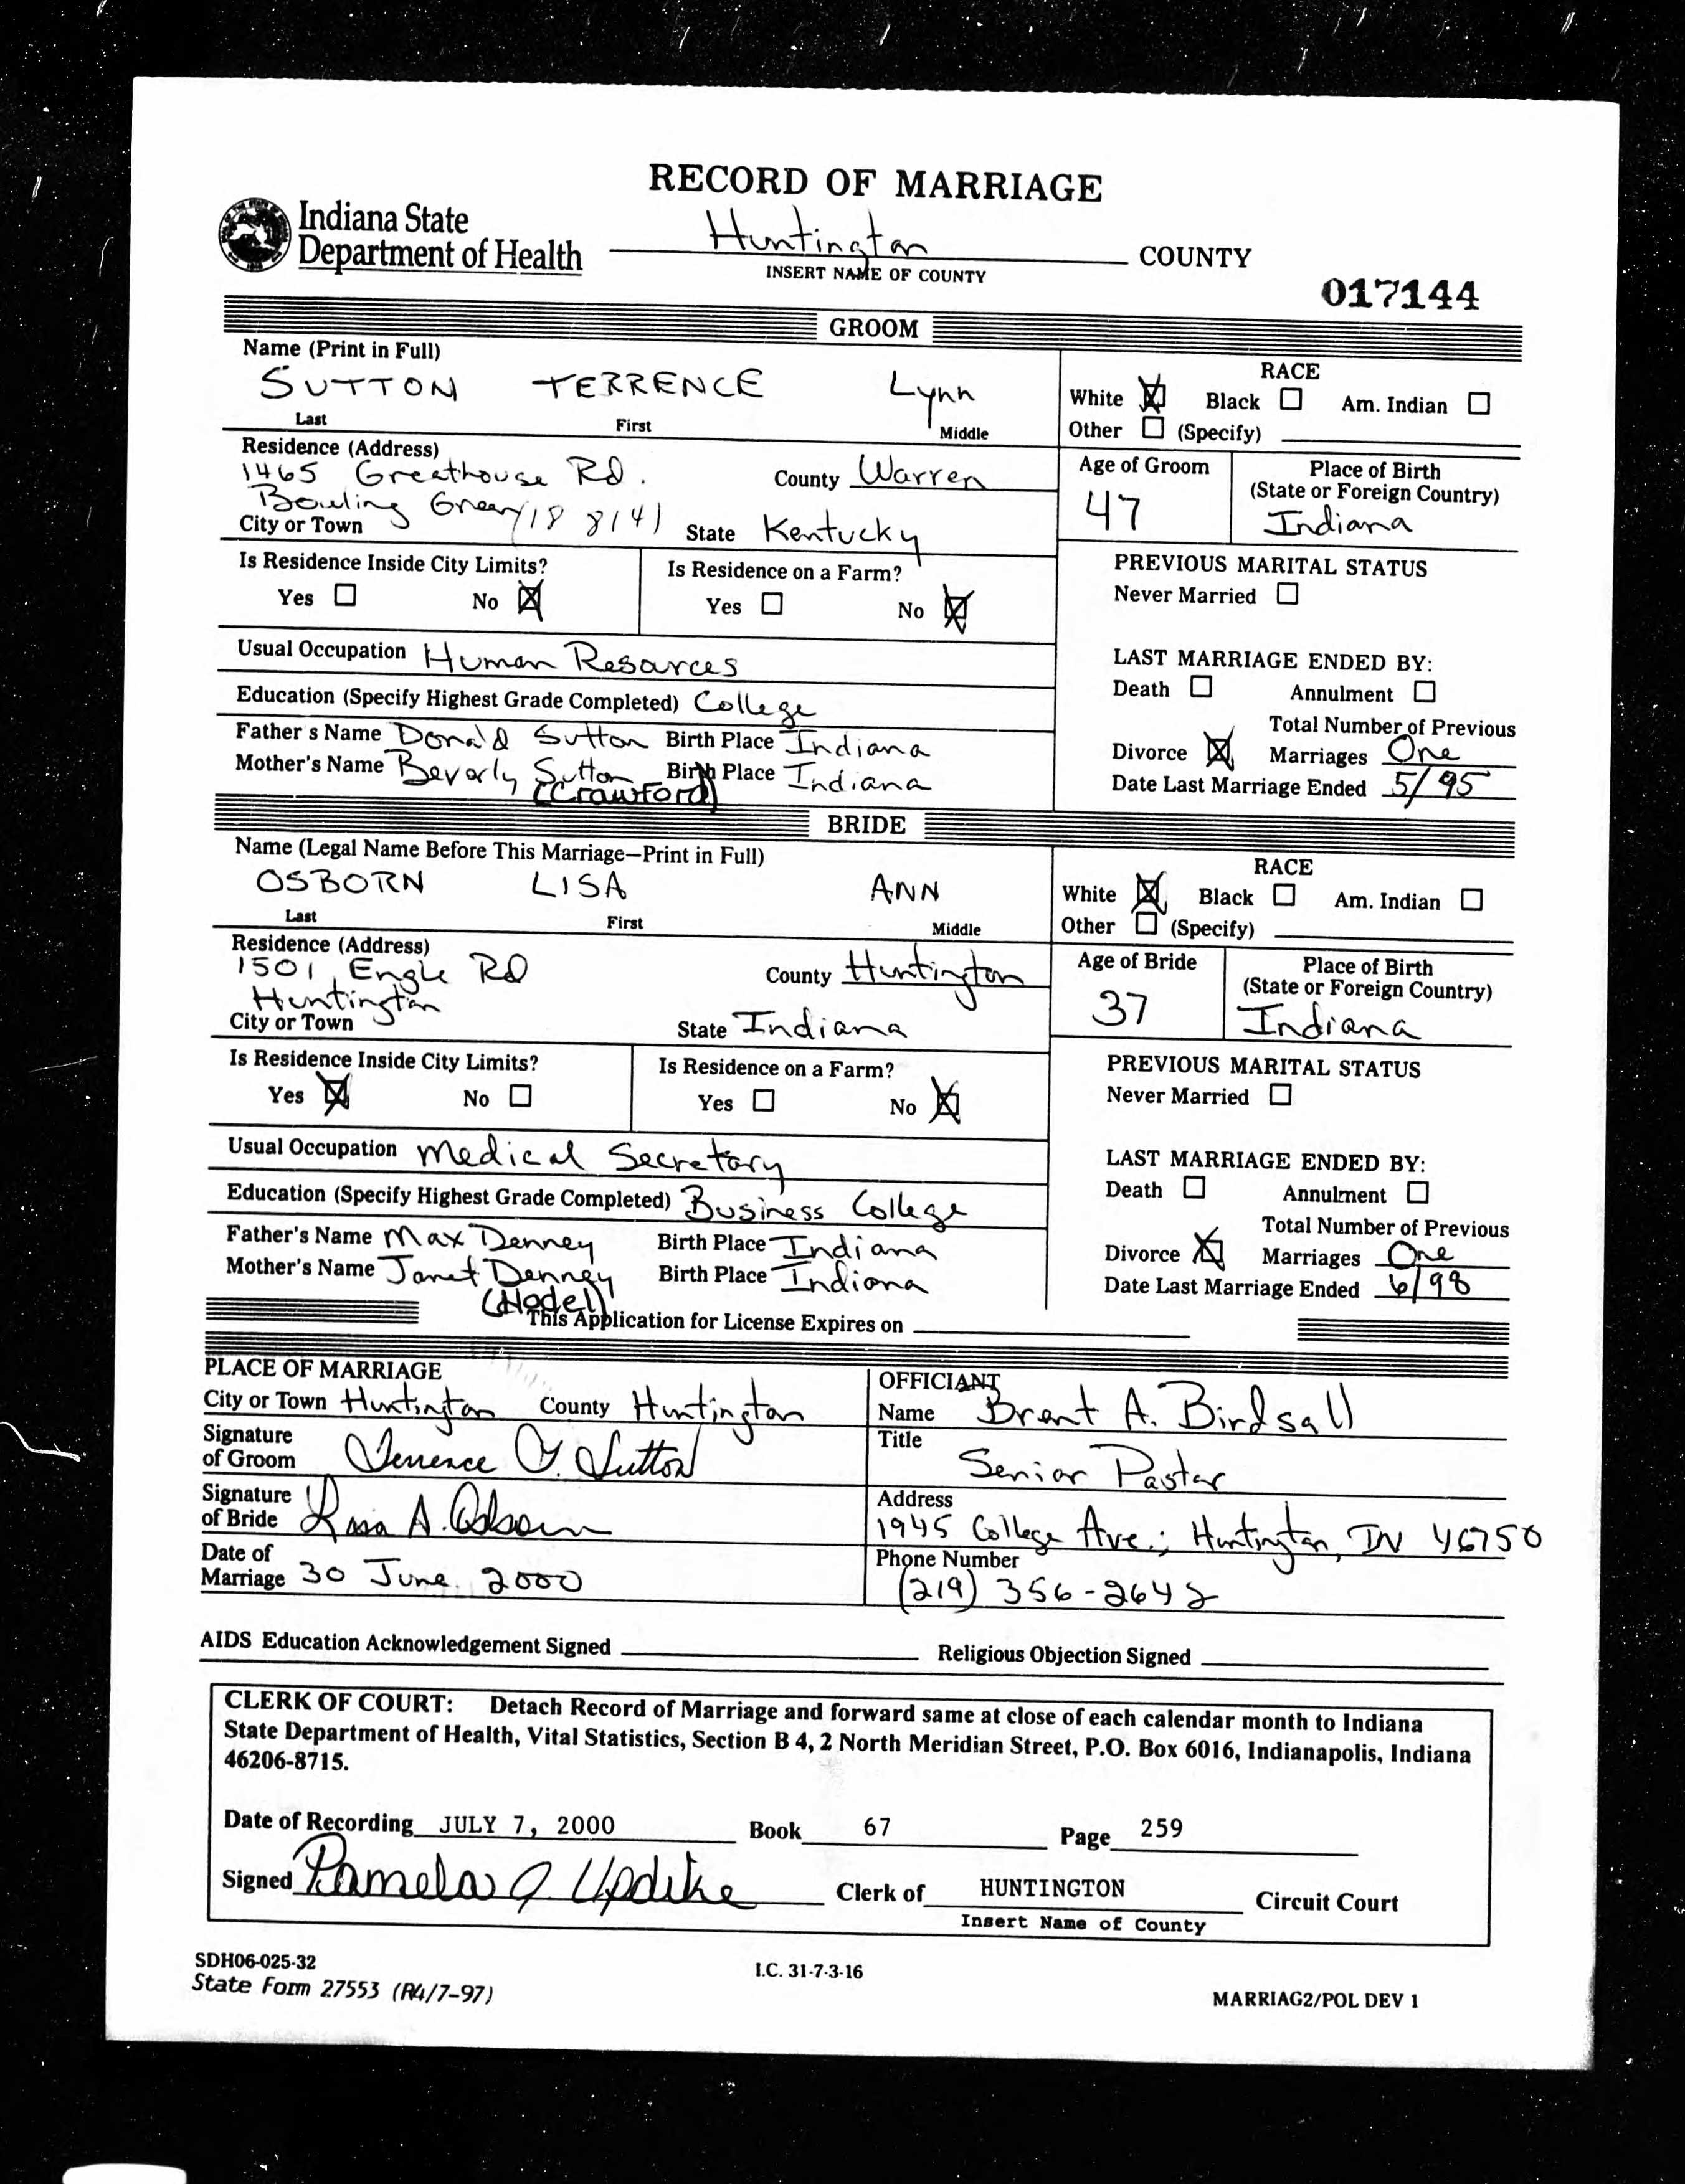 RECORD OF MARRIAGE
Indiana State
Department of Health
Huntington COUNTY
INSERT NAME OF COUNTY
017144
GROOM
Name (Print in Full)
SUTTON TERRENCE Lynn
Last First Middle
RACE
White ☒ Black ☐ Am. Indian ☐
Other ☐ (Specify)
Residence (Address)
1465 Greathouse Rd. County Warren
Bowling Green
City or Town State Kentucky
Age of Groom
47
Place of Birth
(State or Foreign Country)
Indiana
Is Residence Inside City Limits?
Yes ☐ No ☒
Is Residence on a Farm?
Yes ☐ No ☒
PREVIOUS MARITAL STATUS
Never Married ☐
Usual Occupation Human Resources
Education (Specify Highest Grade Completed) College
Father's Name Donald Sutton Birth Place Indiana
Mother's Name Beverly Sutton Birth Place Indiana
(Crawford)
LAST MARRIAGE ENDED BY:
Death ☐ Annulment ☐
Total Number of Previous
Divorce ☒ Marriages One
Date Last Marriage Ended 5/95
BRIDE
Name (Legal Name Before This Marriage—Print in Full)
OSBORN LISA ANN
Last First Middle
RACE
White ☒ Black ☐ Am. Indian ☐
Other ☐ (Specify)
Residence (Address)
1501 Engle Rd County Huntington
Huntington
City or Town State Indiana
Age of Bride
37
Place of Birth
(State or Foreign Country)
Indiana
Is Residence Inside City Limits?
Yes ☒ No ☐
Is Residence on a Farm?
Yes ☐ No ☒
PREVIOUS MARITAL STATUS
Never Married ☐
Usual Occupation Medical Secretary
Education (Specify Highest Grade Completed) Business College
Father's Name Max Denney Birth Place Indiana
Mother's Name Janet Denney Birth Place Indiana
(Hodel)
LAST MARRIAGE ENDED BY:
Death ☐ Annulment ☐
Total Number of Previous
Divorce ☒ Marriages One
Date Last Marriage Ended 6/98
This Application for License Expires on
PLACE OF MARRIAGE
City or Town Huntington County Huntington
Signature
of Groom Terrence L. Sutton
Signature
of Bride Lisa A. Osborn
Date of
Marriage 30 June, 2000
OFFICIANT
Name Brent A. Birdsall
Title
Senior Pastor
Address
1945 College Ave.; Huntington, IN 46750
Phone Number
(219) 356-2642
AIDS Education Acknowledgement Signed Religious Objection Signed
CLERK OF COURT: Detach Record of Marriage and forward same at close of each calendar month to Indiana
State Department of Health, Vital Statistics, Section B 4, 2 North Meridian Street, P.O. Box 6016, Indianapolis, Indiana
46206-8715.
Date of Recording JULY 7, 2000 Book 67 Page 259
Signed Pamela J Updike Clerk of HUNTINGTON Circuit Court
Insert Name of County
SDH06-025-32
State Form 27553 (R4/7-97)
I.C. 31-7-3-16
MARRIAG2/POL DEV 1